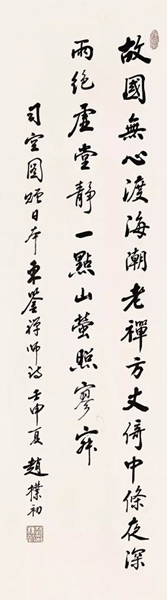 故國無心渡海潮老禪方丈倚中條夜深
雨絕虛堂靜一點山螢照寥寂
司空圖贈日本東鑒禪師詩壬申夏趙樸初